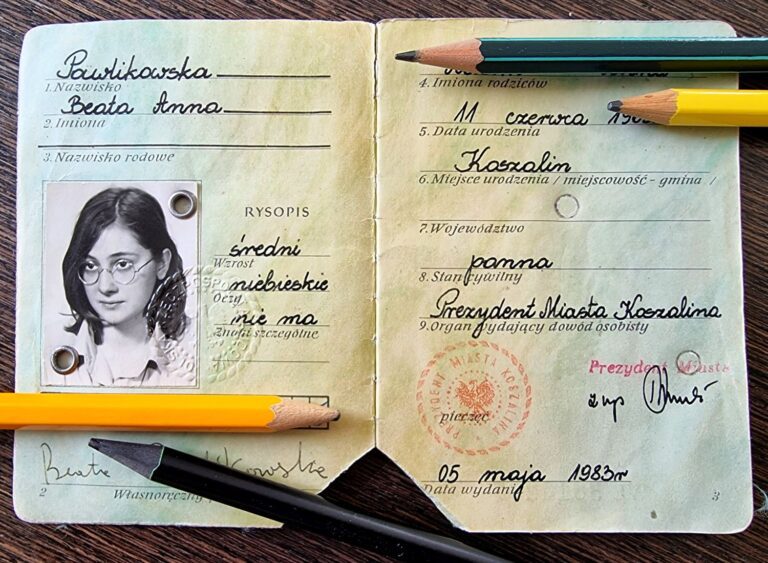 Pawlikowska
1. Nazwisko
Beata Anna
2. Imiona
3. Nazwisko rodowe
RYSOPIS
średni
Wzrost
niebieskie
Oczy
nie ma
Znaki szczególne
Beata
2
Własnoręczny
4. Imiona rodziców
11 czerwca
5. Data urodzenia
Koszalin
6. Miejsce urodzenia / miejscowość - gmina /
7. Województwo
panna
8. Stan cywilny
Prezydent Miasta Koszalina
9. Organ wydający dowód osobisty
Prezydent Miasta
PREZYDENT MIASTA KOSZALINA
pieczęć
05 maja 1983r
Data wydania
3